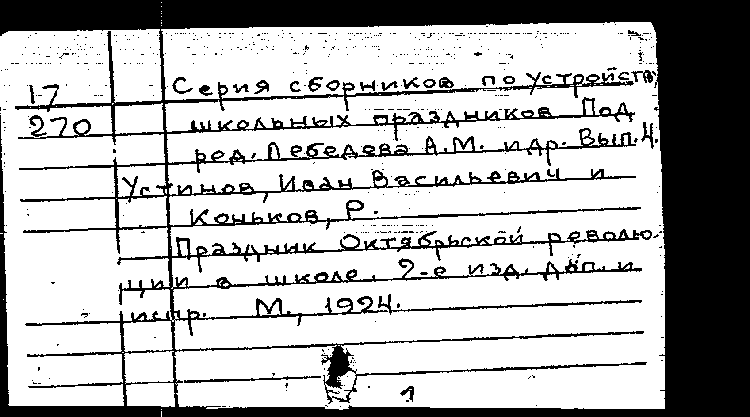 17 Серия сборников по устройств
270 школьных праздников Под
ред. Лебедева А.М. и др. Вып.4.
Устинов, Иван Васильевич и
Коньков, Р.
Праздник Октябрьской револю-
ции в школе. 2-е изд. доп. и
испр. М., 1924.
1